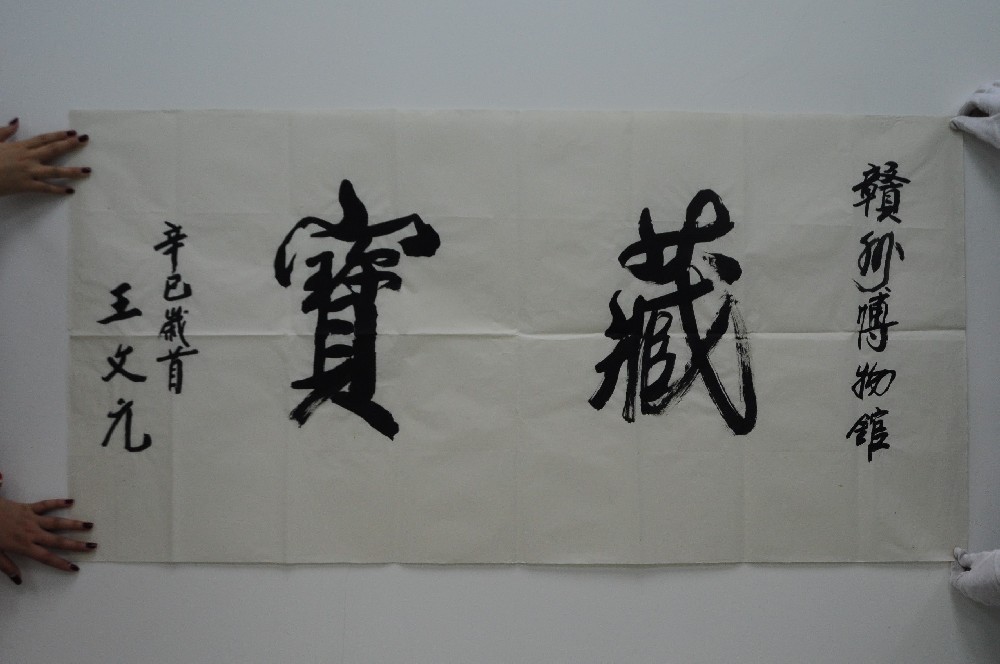 贛州博物館
藏寶
辛巳歲首
王文元